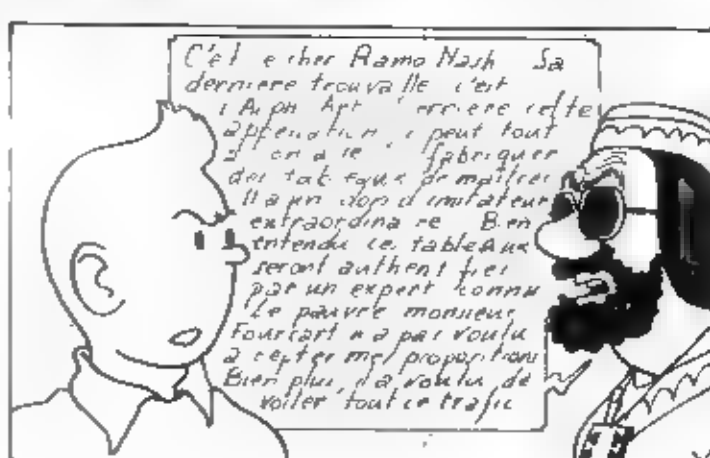 C'est ce cher Ramo Nash Sa
derniere trouvaille c'est
l'Alph Art Derriere cette
appellation, il peut tout
à son aise fabriquer
des tableaux de maîtres
Il a un don d'imitateur
extraordinaire Bien
entendu ces tableaux
seront authentifiés
par un expert connu
Le pauvre monsieur
Fourcart n'a pas voulu
accepter mes propositions
Bien plus il a voulu dé
voiler tout ce trafic